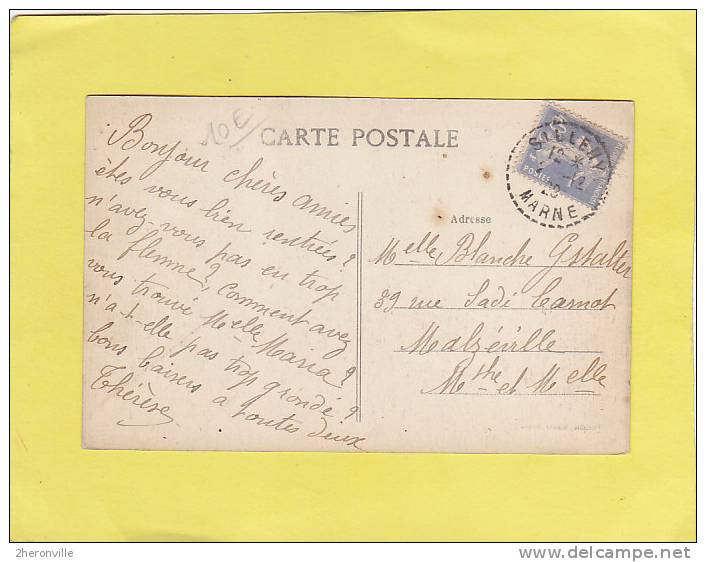 10€
CARTE POSTALE
Bonjour chères amies
êtes vous bien rentrées ?
n'avez-vous pas eu trop
la flemme ? Comment avez
vous trouvé Melle Maria ?
n'a-t-elle pas trop grondé ?
bons baisers a toutes deux
Thérèse
SILLERY
12 *
-12
28
MARNE
POSTES
Adresse
Melle Blanche Gstalter
39 rue Sadi Carnot
Malzéville
Mthe et Melle
2heronville
www.delcampe.net